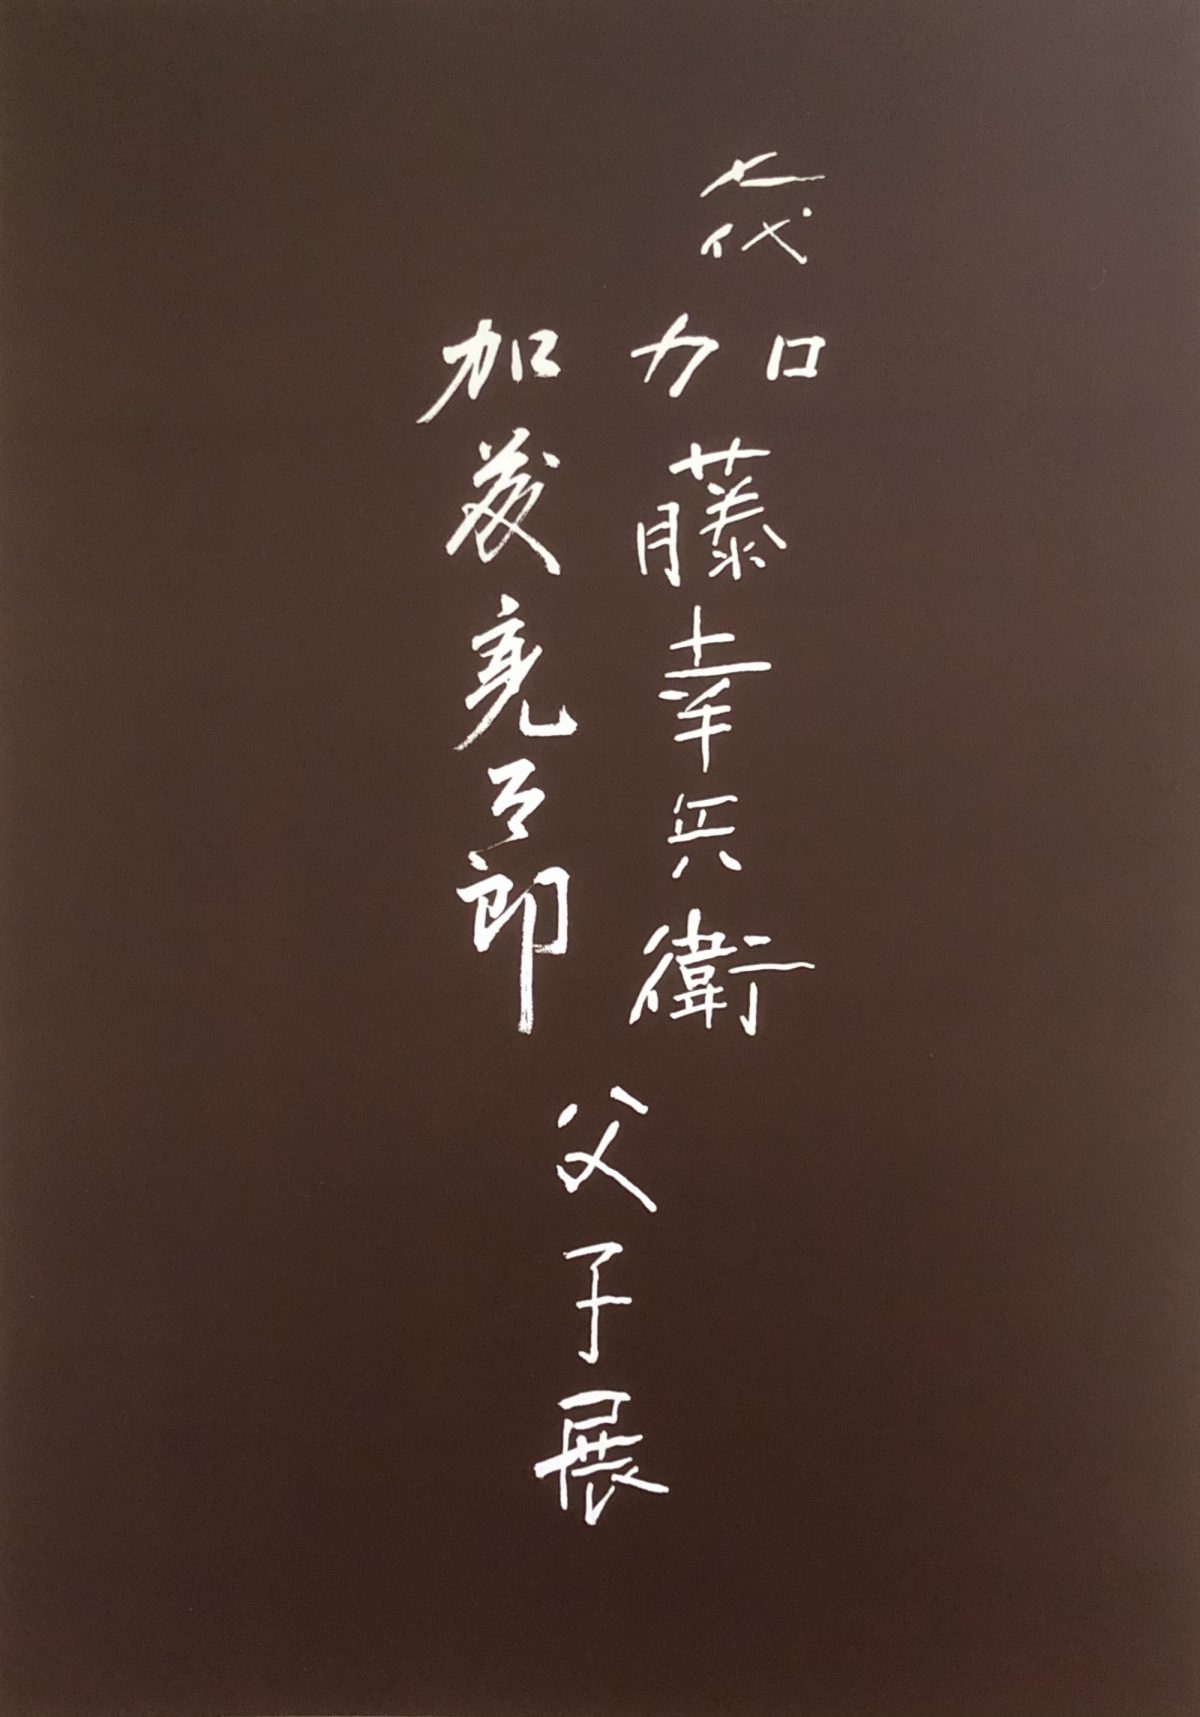 七代
加藤幸兵衛
加藤亮太郎
父子展